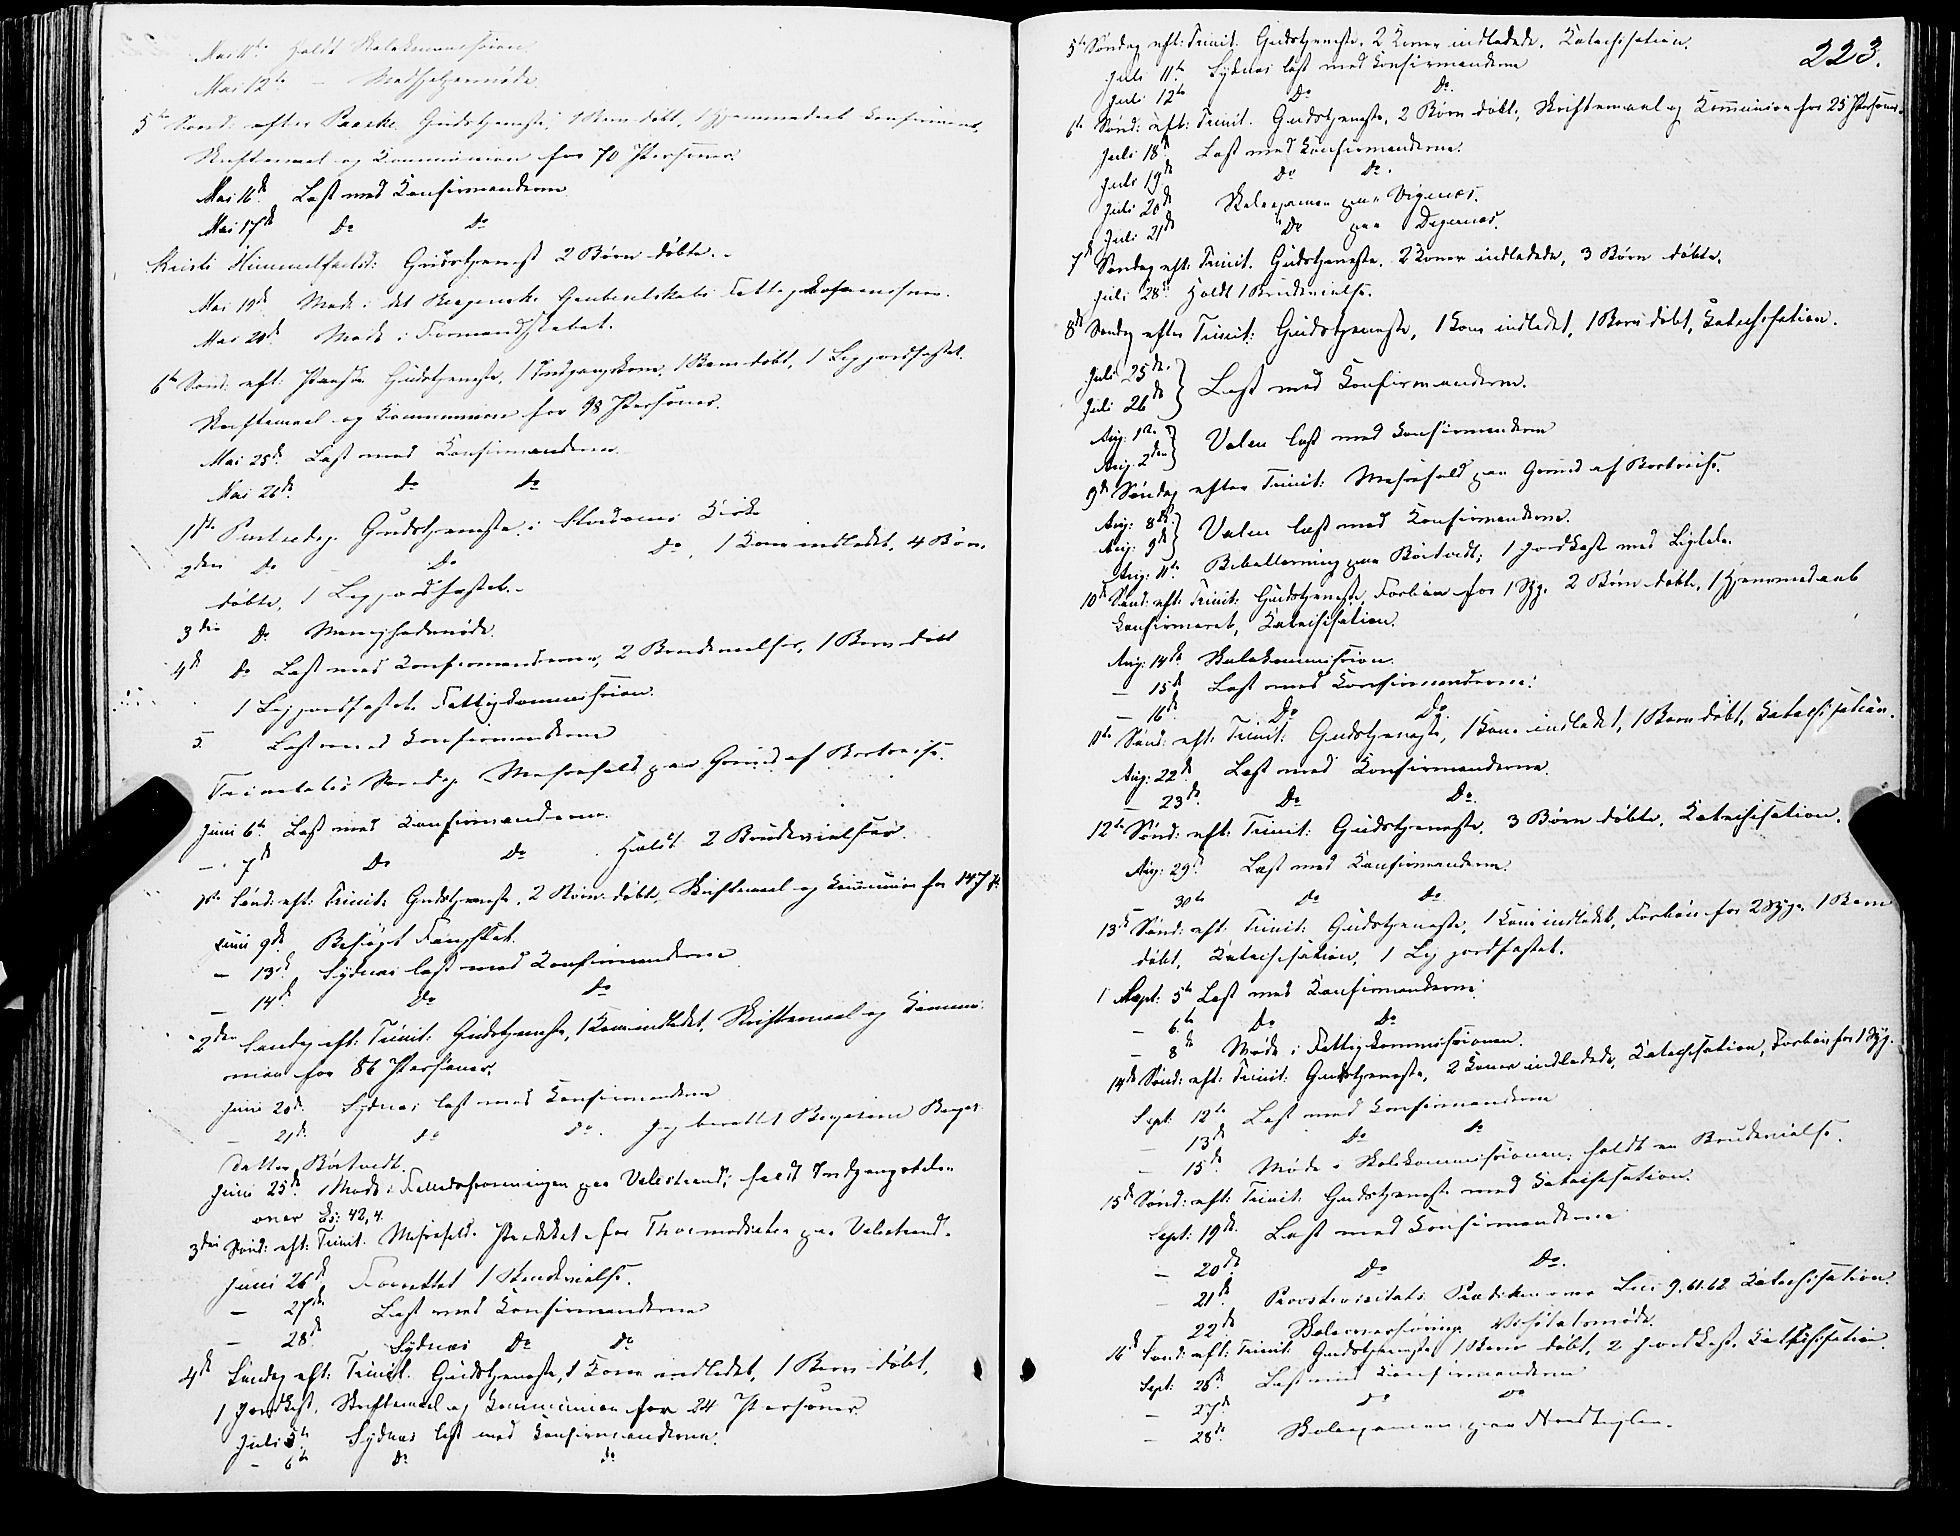 Mai 11te Holdt Skolekommission
Mai 12te —
5te Sønd: efter Paaske. Gudstjeneste, 1 Barn døbt, 1 hjemmedøbt konfirmeret,
Skriftemaal og Kommunion for 70 Personer.
Mai 16de Læst med Konfirmanderne
Mai 17de Do Do
Kristi Himmelfartsd: Gudstjeneste 2 Børn døbte.
Mai 19de Møde i det
Mai 20de Møde i Formandskabet.
6te Sønd: eft: Paaske Gudstjeneste, 1 Indgangskone, 1 Barn døbt, 1 Lig jordfæstet.
Skriftemaal og Kommunion for 98 Personer.
Mai 25de Læst med Konfirmanderne.
Mai 26de Do Do
1ste Pintsedag. Gudstjeneste i Kirke
2den Do Do Do, 1 Kone indledet, 4 Børn
døbte, 1 Lig jordfæstet.
3die Do Menighedsmøde.
4de Do Læst med Konfirmanderne, 2 Brudevielser, 1 Barn døbt
1 Lig jordfæstet. Fattigkommission.
5. Læst med Konfirmanderne
Trinitatis Søndag. Messefald paa Grund af Bortreise.
Juni 6te Læst med Konfirmanderne.
— 7de Do Do Holdt 2 Brudevielser.
1ste Sønd: eft: Trinit: Gudstjeneste, 2 Børn døbte, Skriftemaal og Kommunion for 147 P.
Juni 9de Besøgt Fængslet.
— 13de Sydnæs læst med Konfirmanderne
— 14de Do Do
2den Søndag eft: Trinit: Gudstjeneste, 1 Kone indledet, Skriftemaal og Kommu-
nion for 86 Personer.
Juni 20de Sydnæs læst med Konfirmanderne
— 21de Do Do. Jeg berettet
Datter Børtvedt.
Juni 25de 1 Møde i paa Valestrand; holdt Indgangstale
over Es: 42,4.
3die Sønd: eft: Trinit. Messefald. Prædiket for paa Valestrand.
Juni 26de Forrettet 1 Brudevielse.
— 27de Læst med Konfirmanderne
— 28de Sydnæs Do Do
4de Søndag eft: Trinit. Gudstjeneste, 1 Kone indledet, 1 Barn døbt,
1 Jordkast, Skriftemaal og Kommunion for 24 Personer
Juli 5te Sydnæs læst med Konfirmanderne.
— 6te Do Do
223.
5te Søndag eft: Trinit. Gudstjeneste. 2 Koner indledede. Katechisation.
Juli 11te Sydnæs læst med Konfirmanderne
Juli 12te Do Do.
6te Sønd: eft: Trinit. Gudstjeneste, 2 Børn døbt, Skriftemaal og Kommunion for 25 Personer.
Juli 18de Læst med Konfirmanderne.
Juli 19de Do Do.
Juli 20de Skoleexamen paa Vigenæs.
Juli 21de Do paa Digernæs.
7de Søndag eft: Trinit. Gudstjeneste. 2 Koner indledede, 3 Børn døbte.
Juli 28de Holdt 1 Brudevielse.
8de Søndag efter Trinit: Gudstjeneste, 1 Kone indledet, 1 Barn døbt, Katechisation.
Juli 25de.
Juli 26de Læst med Konfirmanderne.
Aug: 1ste
Aug. 2den Valen læst med Konfirmanderne
9de Søndag efter Trinit: Messefald paa Grund af Bortreise.
Aug: 8de
Aug: 9de Valen læst med Konfirmanderne.
Aug: 11te paa Børtvedt; 1 Jordkast med Ligtale.
10de Sønd: eft: Trinit: Gudstjeneste, Forbøn for 1 Syg. 2 Børn døbte, 1 Hjemmedøbt
konfirmeret, Katechisation.
Aug: 14de Skolekommission.
— 15de Læst med Konfirmanderne.
— 16de Do Do.
11te Sønd: eft: Trinit: Gudstjeneste, 1 Kone indledet, 1 Barn døbt, Katechisation.
Aug: 22de Læst med Konfirmanderne.
— 23de Do Do.
12te Sønd: eft: Trinit: Gudstjeneste, 3 Børn døbte, Katechisation.
Aug: 29de Læst med Konfirmanderne.
— 30te Do Do
13de Sønd: eft: Trinit: Gudstjeneste, 1 Kone indledet, Forbøn for 2 Syge. 1 Barn
døbt, Katechisation, 1 Lig jordfæstet.
Sept: 5te Læst med Konfirmanderne.
— 6te Do Do
— 8de Møde i Fattigkommissionen.
14de Sønd: eft: Trinit: Gudstjeneste, 2 Koner indledede, Katechisation, Forbøn for 1 Syg.
Sept: 12te Læst med Konfirmanderne
— 13de Do Do
— 15de Møde i Skolekommissionen; holdt en Brudevielse.
15de Sønd: eft: Trinit: Gudstjeneste med Katechisation.
Sept: 19de Læst med Konfirmanderne
— 20de Do Do.
— 21de Provstevisitats. Prædiken over Luc 9, 61.62 Katechisation.
— 22de Visitatsmøde.
16de Sønd: eft: Trinit: Gudstjeneste, 1 Barn døbt, 2 Jordkast, Katechisation.
Sept: 26de Læst med Konfirmanderne
— 27de Do Do
— 28de Skoleexamen paa